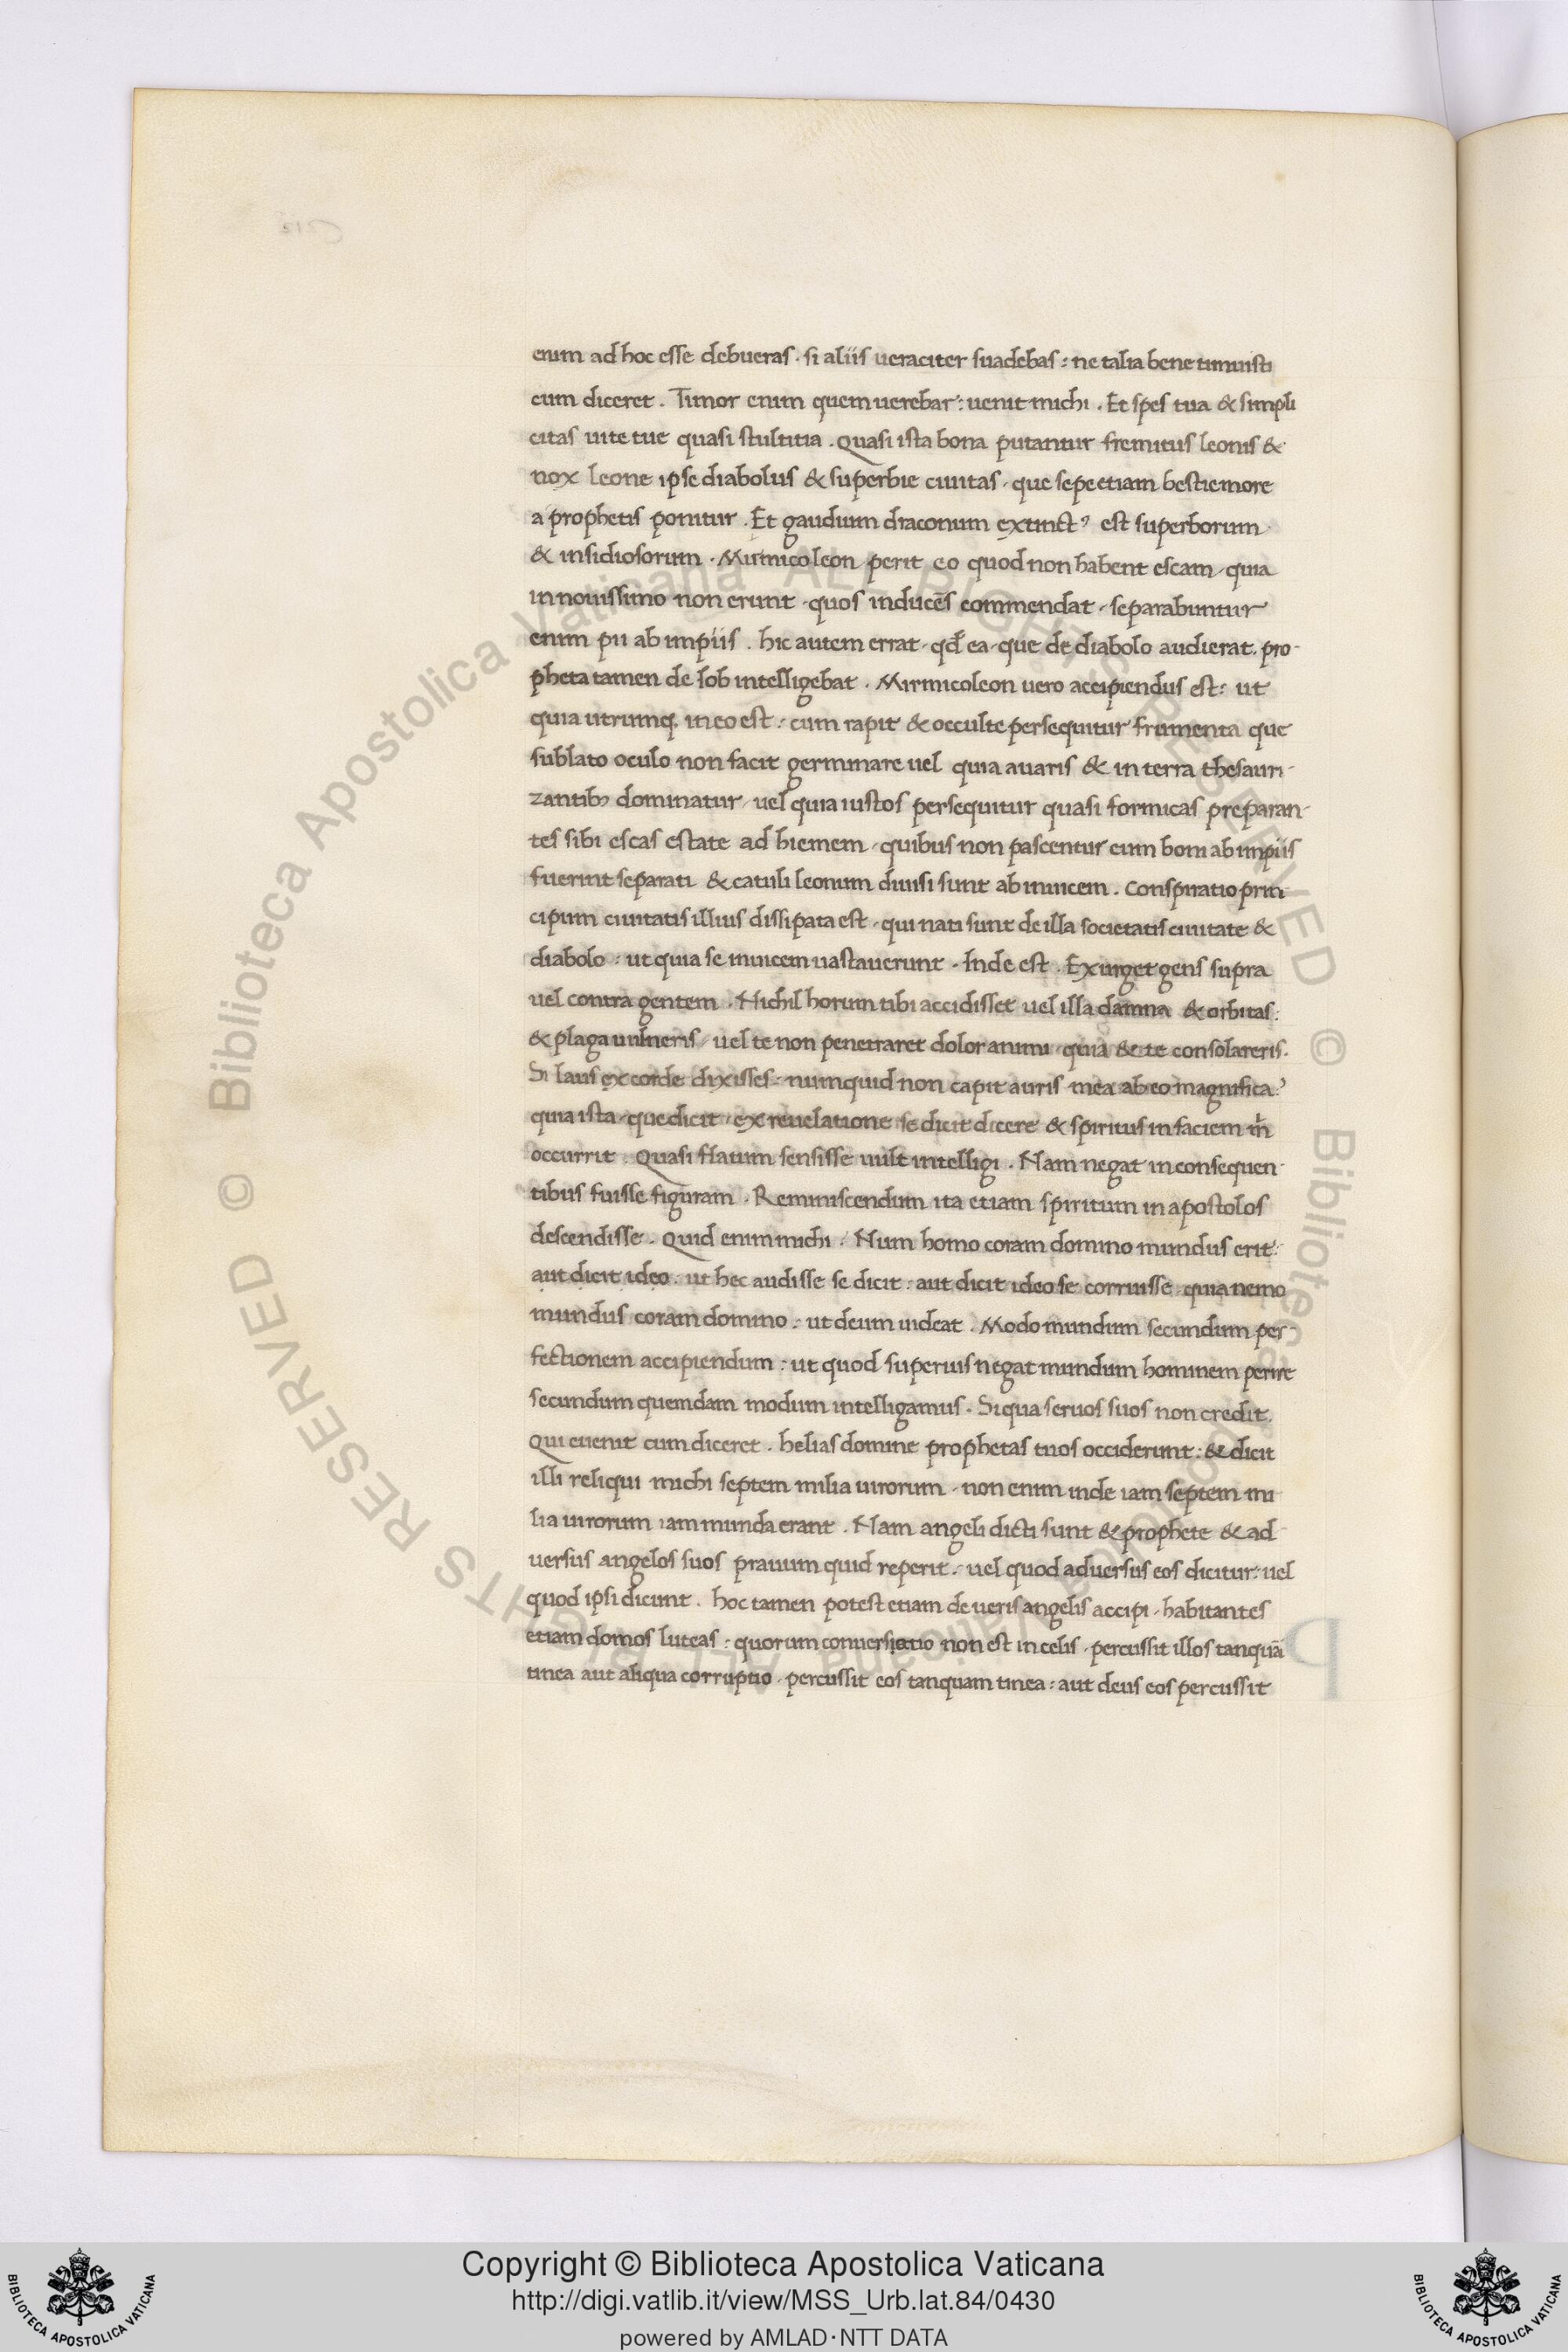 enim ad hoc esse debueras . si aliis ueraciter suadebas : ne talia bene timuisti
cum diceret . Timor enim quem uerebar : uenit michi . Et spes tua & simpli
citas uite tue quasi stultitia . Quasi ista bona putantur fremitus leonis &
nox leone ipse diabolus & superbie ciuitas . que sepe etiam bestie more
a prophetis ponitur . Et gaudium draconum extinctꝰ est superborum
& insidiosorum . Mirmicoleon perit eo quod non habent escam . quia
in nouissimo non erunt . quos inducēs commendat . separabuntur
enim pii ab impiis . hic autem errat . qđ ea . que de diabolo audierat . pro-
pheta tamen de Iob intelligebat . Mirmicoleon uero accipiendus est : ut
quia utrumq. in eo est : cum rapit & occulte persequitur frumenta que
sublato oculo non facit germinare uel quia auaris & in terra thesauri-
zantibꝰ dominatur . uel quia iustos persequitur quasi formicas preparan-
tes sibi escas estate ad hiemem . quibus non pascentur cum boni ab impiis
fuerint separati & catuli leonum diuisi sunt ab inuicem . Conspiratio prin
cipum ciuitatis illius dissipata est . qui nati sunt de illa societatis ciuitate &
diabolo : ut quia se inuicem uastauerunt . Inde est . Exurget gens supra
uel contra gentem . Nichil horum tibi accidisset uel illa damna & orbitas :
& plaga uulneris . uel te non penetraret dolor animi . quia & te consolareris .
Si laus ex corde dixisses : numquid non capit auris mea ab eo magnifica ?
quia ista . que dicit . ex reuelatione se dicit dicere & spiritus in faciem m̄
occurrit . Quasi flatum sensisse uult intelligi . Nam negat in consequen-
tibus fuisse figuram . Reminiscendum ita etiam spiritum in apostolos
descendisse . Quid enim michi . Num homo coram domino mundus erit :
aut dicit ideo : ut hec audisse se dicit : aut dicit ideo se corruisse . quia nemo
mundus coram domino : ut deum uideat . Modo mundum secundum per-
fectionem accipiendum : ut quod superius negat mundum hominem perire
secundum quemdam modum intelligamus . Si qua seruos suos non credit .
Qui euenit cum diceret . helias domine prophetas tuos occiderunt : & dicit
illi reliqui michi septem milia uirorum . non enim inde iam septem mi
lia uirorum iam munda erant . Nam angeli dicti sunt & prophete & ad-
uersus angelos suos prauum quid reperit : uel quod aduersus eos dicitur : uel
quod ipsi dicunt . hoc tamen potest etiam de ueris angelis accipi . habitantes
etiam domos luteas : quorum conuersatio non est in celis . percussit illos tanquā
tinea aut aliqua corruptio . percussit eos tanquam tinea : aut deus eos percussit
© Biblioteca Apostolica Vaticana ALL RIGHTS RESERVED
© Biblioteca Apostolica Vaticana ALL RIGHTS RESERVED
Copyright © Biblioteca Apostolica Vaticana
http://digi.vatlib.it/view/MSS_Urb.lat.84/0430
powered by AMLAD·NTT DATA
BIBLIOTECA APOSTOLICA VATICANA
BIBLIOTECA APOSTOLICA VATICANA